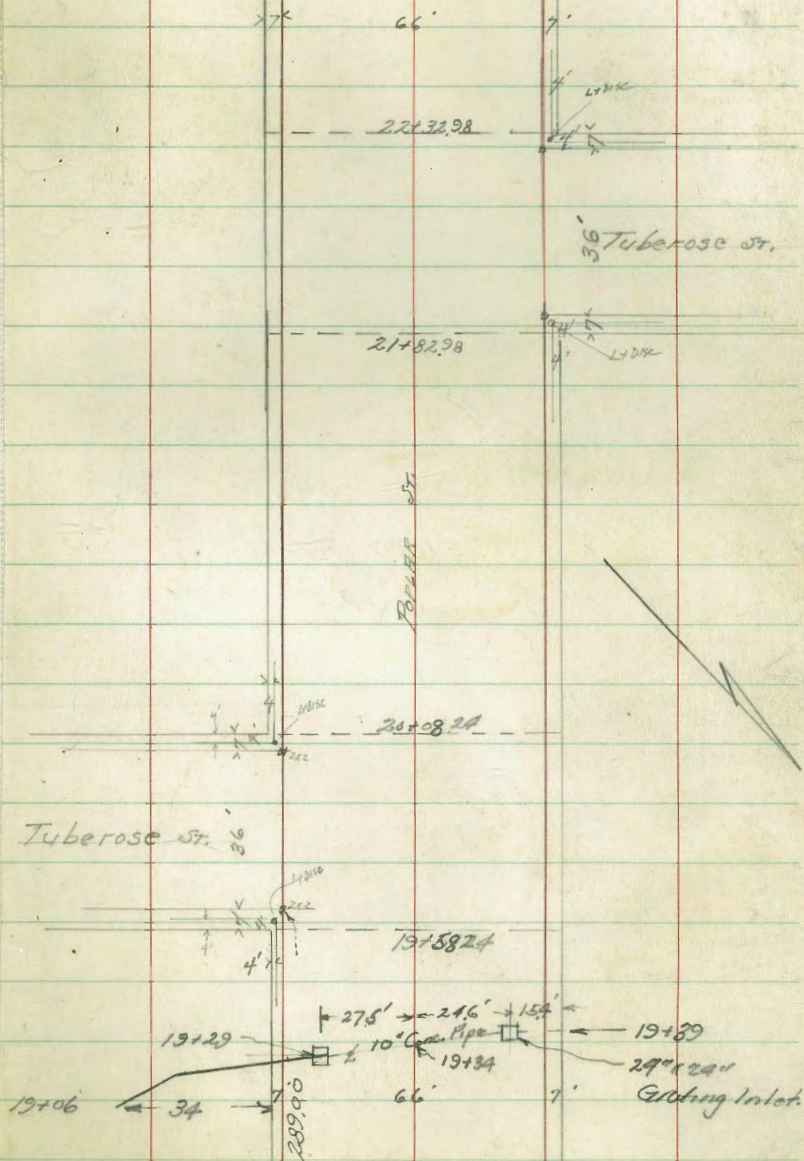 7' 66' 7'
4'
L+DISC
22+32.98 4' 7'
36' Tuberose ST.
7'
21+82.98 4'
L+DISC
4'
POPLAR ST.
4
L+DISC
4' 7' 4' 20+08.24
2x2
Tuberose ST. 36'
L+DISC
2x2
4' 7' 4'
19+58.24
4'
27.5' 24.6' 15.4'
19+29 10" Conc. Pipe 19+39
19+34 24" x 24"
19+06 34 7' 66' 7' Grating Inlet.
289.00